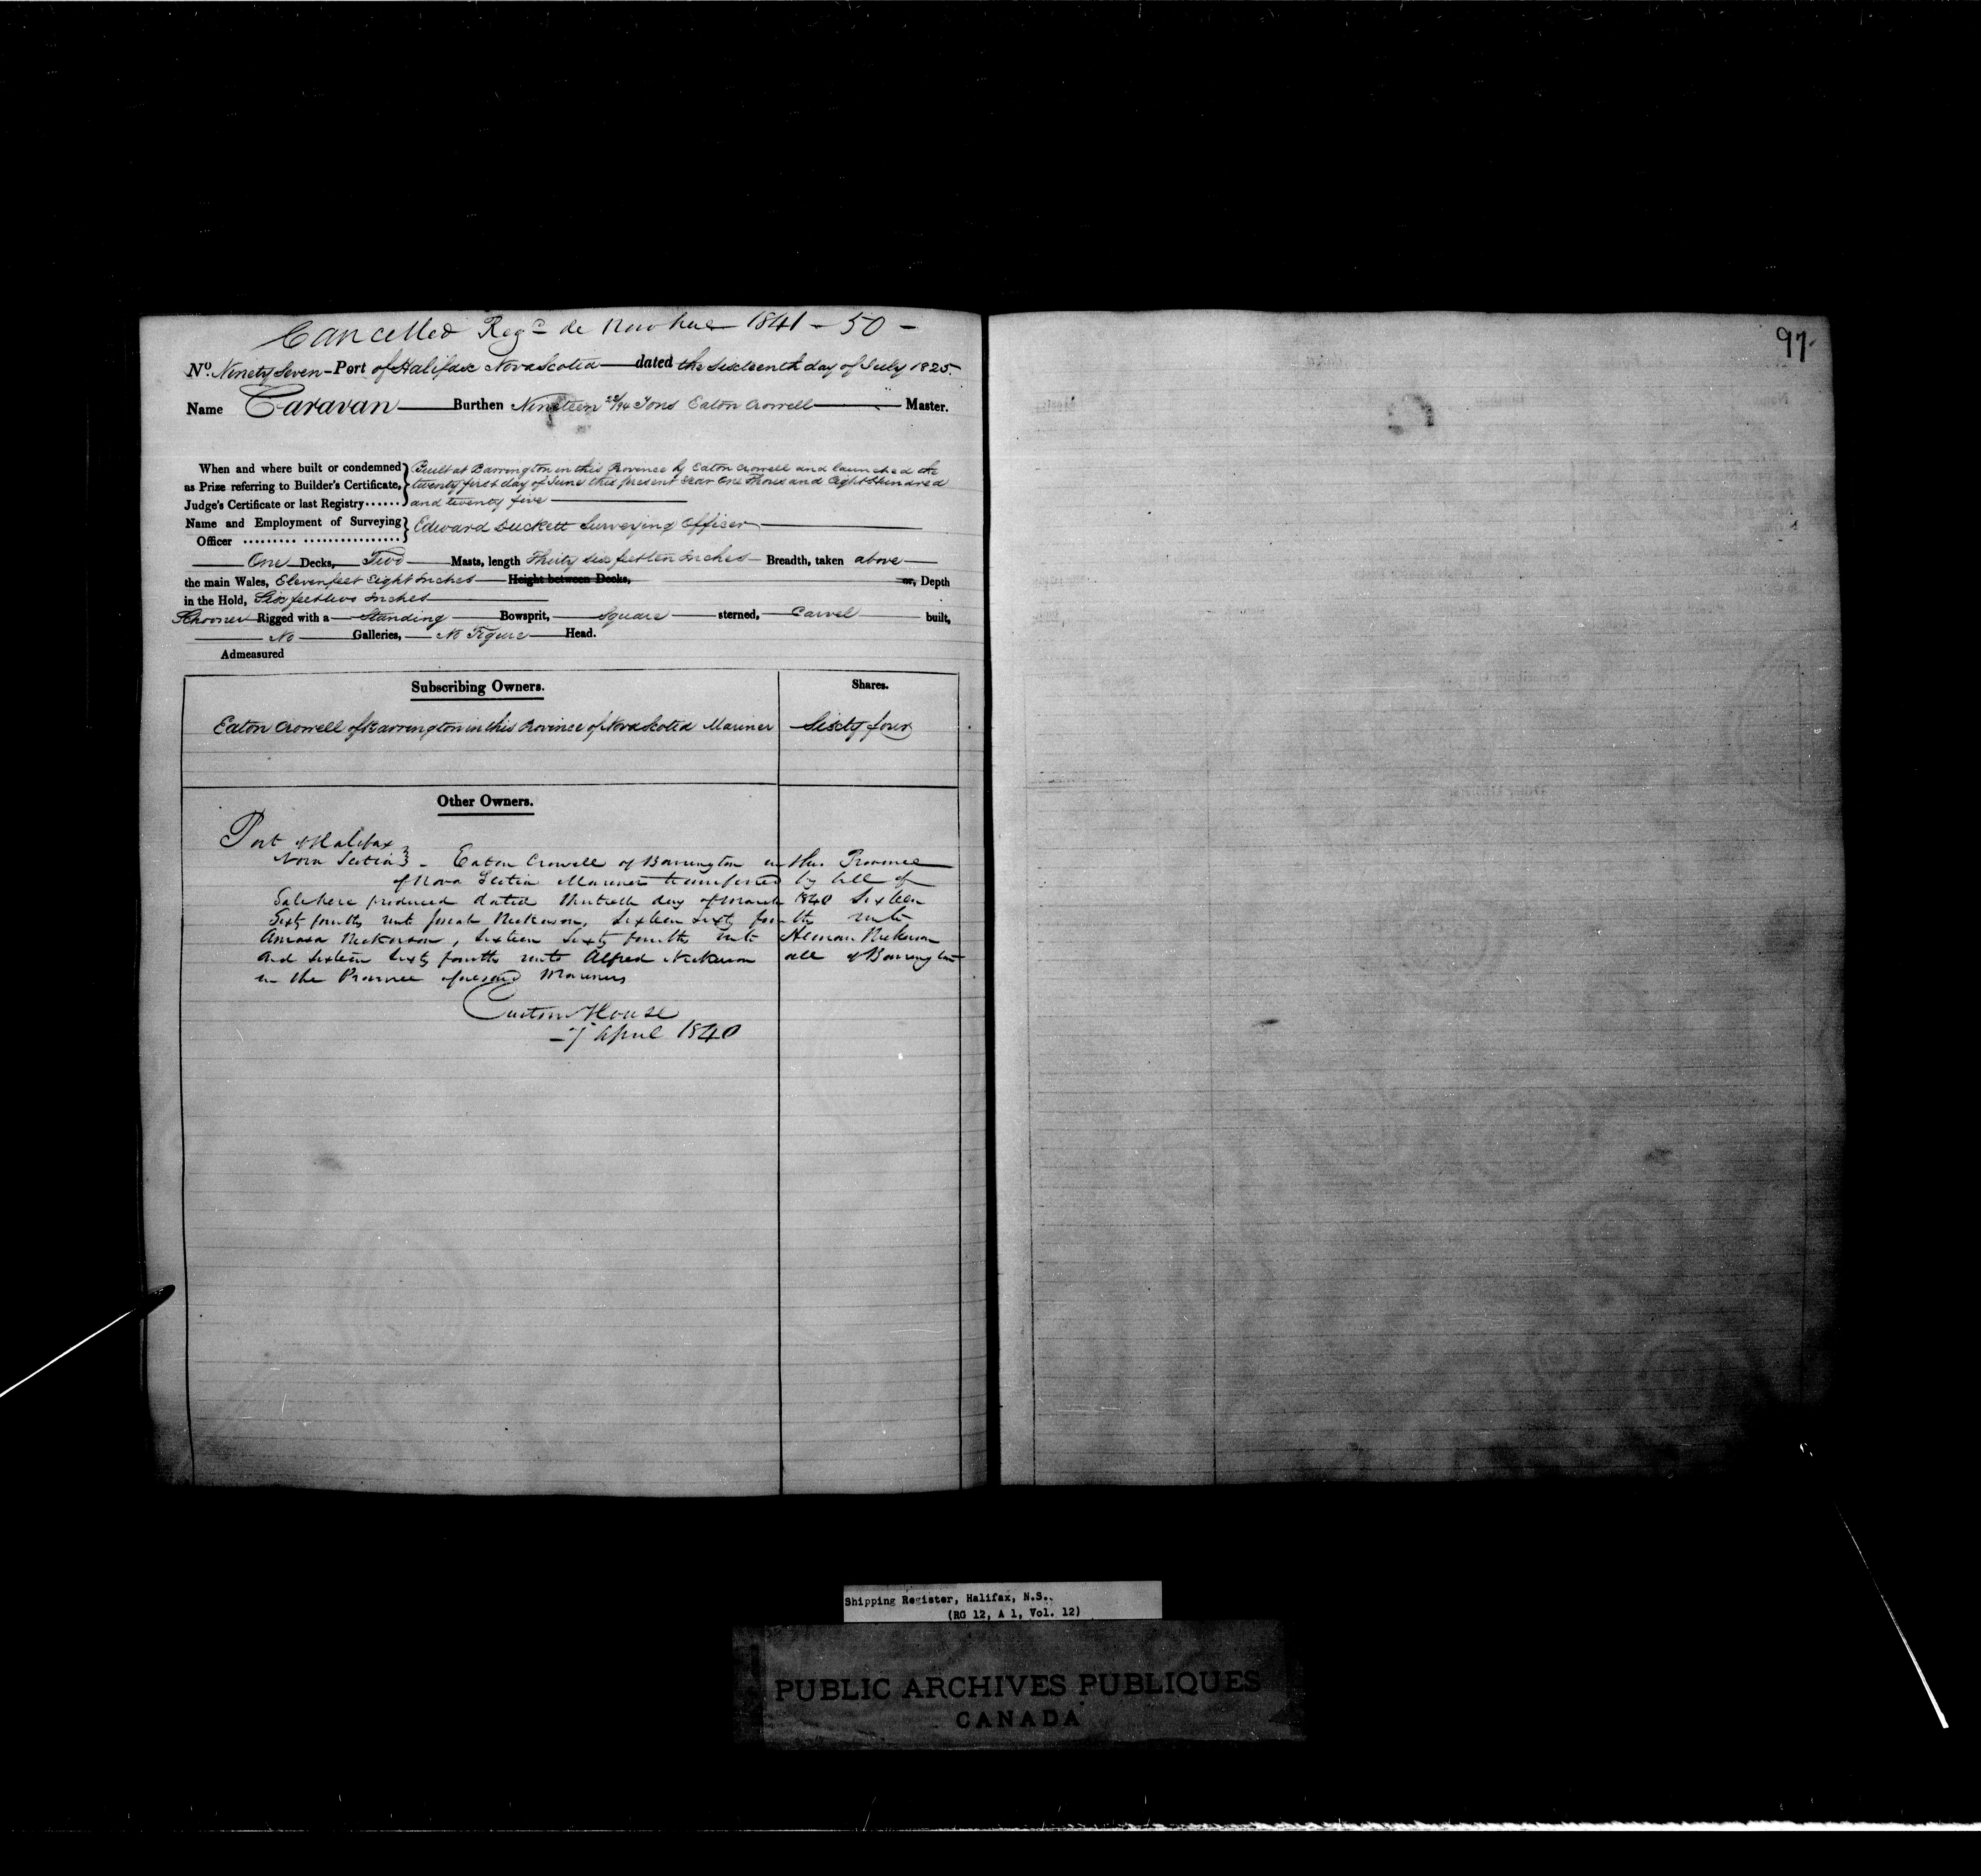 Cancelled Regd de Novo here 1841 - 50 -
97
No. Ninety Seven - Port of Halifax Nova Scotia dated the Sixteenth day of July 1825.
Name Caravan Burthen Nineteen 22/94 Tons Eaton Crowell Master.
When and where built or condemned } Built at Barrington in this Province by Eaton Crowell and launched the
as Prize referring to Builder's Certificate, } twenty first day of June this present Year One Thousand Eight Hundred
Judge's Certificate or last Registry...... } and twenty five
Name and Employment of Surveying } Edward Duckett Surveying Officer
Officer ......... ................
One Decks, Two Masts, length Thirty six feet ten Inches Breadth, taken above
the main Wales, Eleven feet Eight Inches Height between Decks, or, Depth
in the Hold, Six feet two Inches
Schooner Rigged with a Standing Bowsprit, Square sterned, Carvel built,
No Galleries, No Figure Head.
Admeasured
Subscribing Owners. Shares.
Eaton Crowell of Barrington in this Province of Nova Scotia Mariner Sixty four
Other Owners.
Port of Halifax
Nova Scotia } - Eaton Crowell of Barrington in the Province
of Nova Scotia Mariner transferred by bill of
Sale here produced dated Thirtieth day of March 1840 Sixteen
Sixty fourths unto Nickerson, Sixteen Sixty fourths unto
Amasa Nickerson, Sixteen Sixty fourths unto Heman Nickerson
and Sixteen Sixty fourths unto Alfred Nickerson all of Barrington
in the Province aforesaid Mariners
Custom House
7 April 1840
Shipping Register, Halifax, N.S..
(RG 12, A 1, Vol. 12)
PUBLIC ARCHIVES PUBLIQUES
CANADA